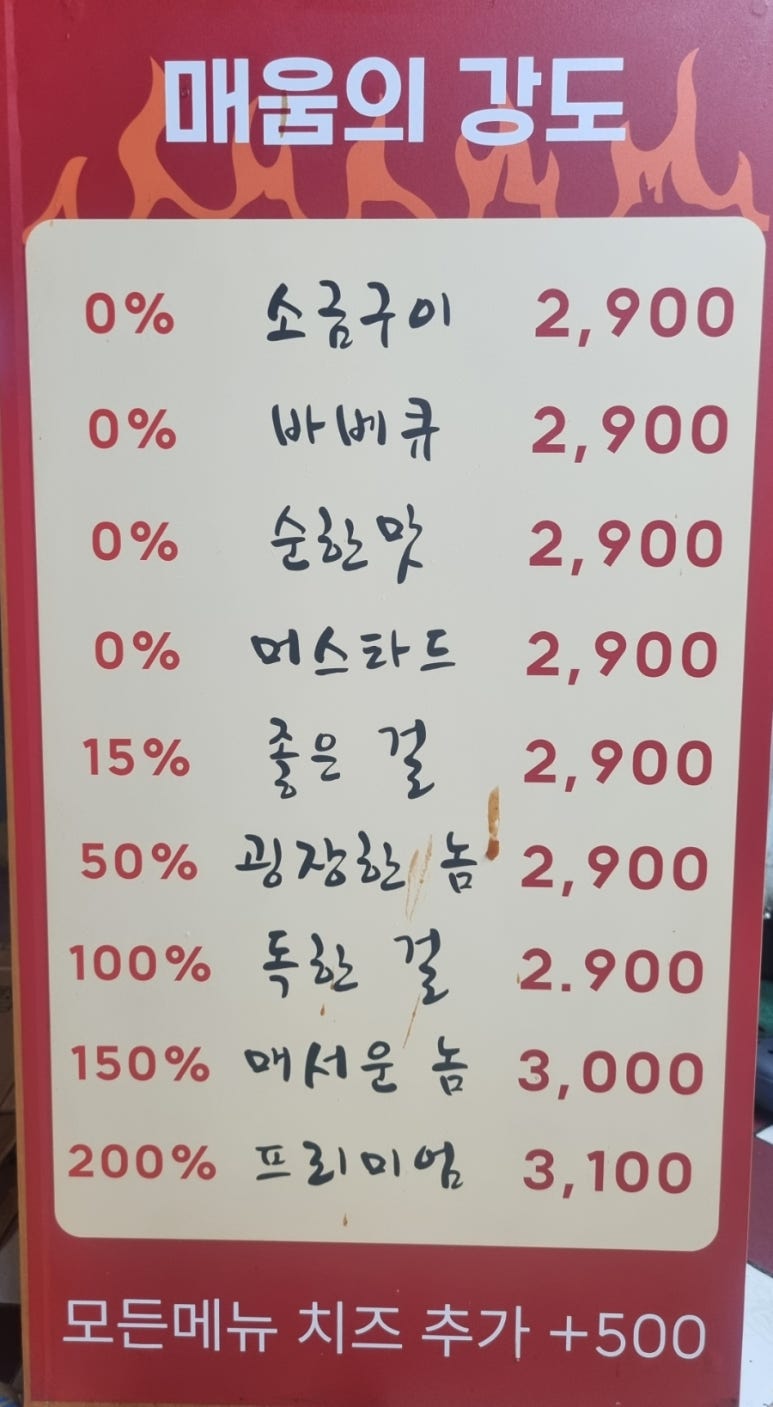 매움의 강도
0% 소금구이 2,900
0% 바베큐 2,900
0% 순한맛 2,900
0% 머스타드 2,900
15% 좋은 걸 2,900
50% 굉장한 놈 2,900
100% 독한 걸 2.900
150% 매서운 놈 3,000
200% 프리미엄 3,100
모든메뉴 치즈 추가 +500